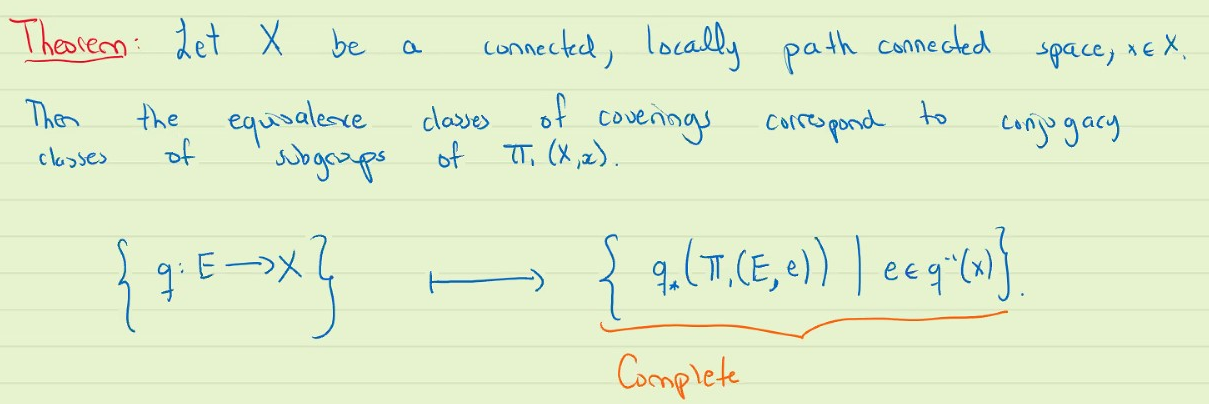 Theorem: Let X be a connected, locally path connected space, x ∈ X.
Then the equivalence classes of coverings correspond to conjugacy
classes of subgroups of π₁(X,x).
{ q: E → X } ⟼ { q_*(π₁(E,e)) | e ∈ q⁻¹(x) }.
Complete